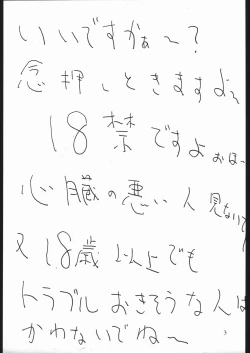 いいですかぁ〜?
念押しときますよ
18禁ですよ おほ〜
心臓の悪い人 見ないで
又18歳以上でも
トラブルおきそうな人は
かわないでね〜
3